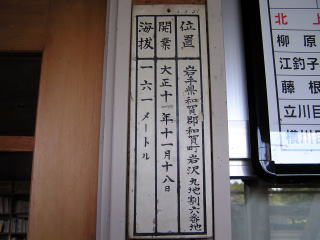 位置 岩手県和賀郡和賀町岩沢九地割六番地
開業 大正十一年十一月十八日
海抜 一六一メートル
北上
柳原
江釣子
藤根
立川目
横川目